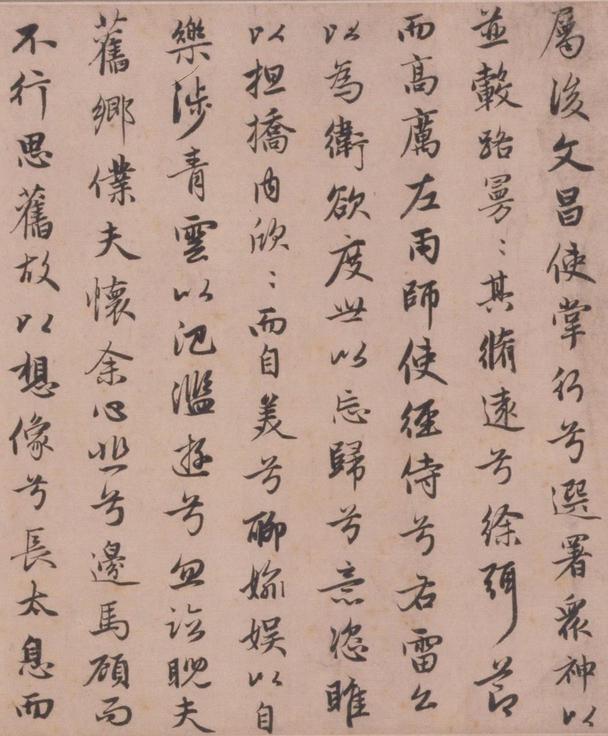 屬後文昌使掌行兮選署眾神以
並轂路曼〻其脩遠兮徐弭節
而高厲左雨師使徑侍兮右雷公
以為衛欲度世以忘歸兮意恣睢
以担撟內欣〻而自美兮聊媮娛以自
樂涉青雲以汎濫遊兮忽臨睨夫
舊鄉僕夫懷余心悲兮邊馬顧而
不行思舊故以想像兮長太息而